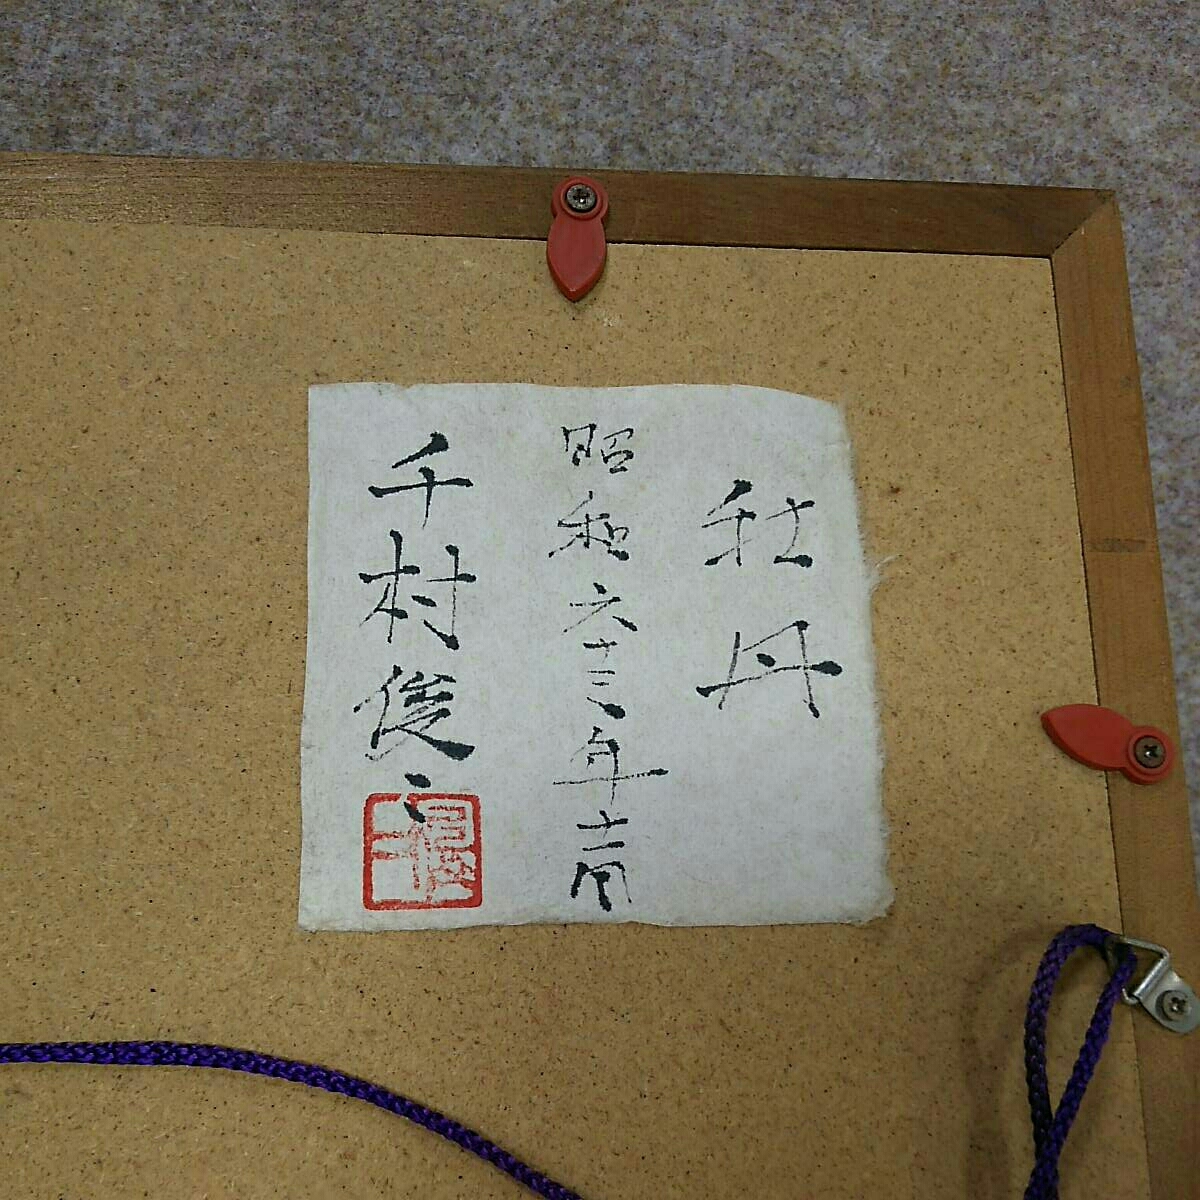 牡丹
昭和六十三年十一月
千村俊二